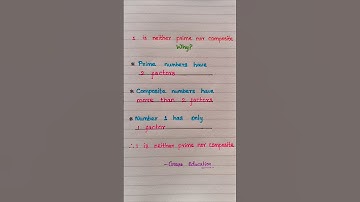 1 is neither prime nor composite
Why?
* Prime numbers have
2 factors
* Composite numbers have
more than 2 factors
* Number 1 has only
1 factor
∴ 1 is neither prime nor composite
Education